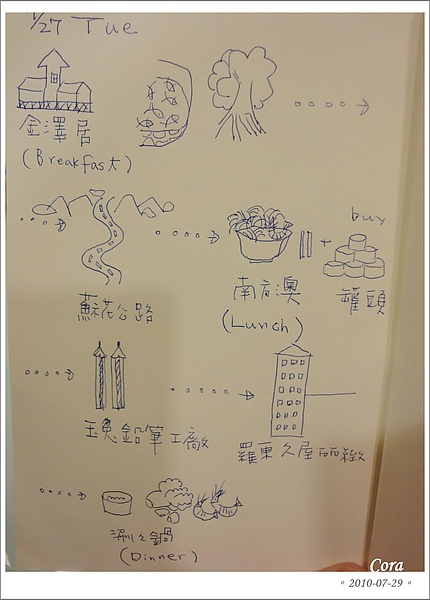 7/27 Tue
金澤居
(Breakfast)
buy
蘇花公路
南方澳
(Lunch)
罐頭
玉兔鉛筆工廠
羅東久屋品緻
涮々鍋
(Dinner)
Cora
2010-07-29